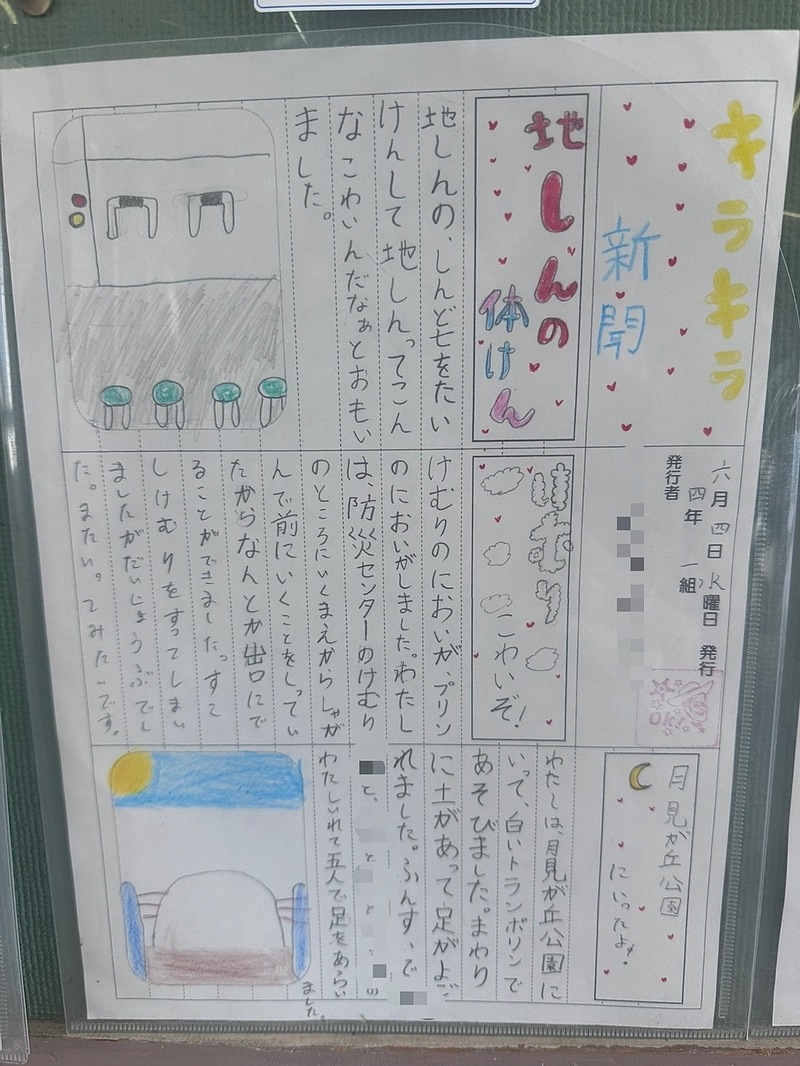 キラキラ
新聞
六月四日水曜日 発行
四年 一組
発行者
OK!
地しんの
体けん
地しんの、しんど七をたい
けんして地しんってこん
なこわいんだなぁとおもい
ました。
けむり
こわいぞ!
けむりのにおいが、プリン
のにおいがしました。わたし
は、防災センターのけむり
のところにいくまえからしゃが
んで前にいくことをしってい
たからなんとか出口にで
ることができました。すこ
しけむりをすってしまい
ましたがだいじょうぶでし
た。またいってみたいです。
月見が丘公園
にいったよ!
わたしは、月見が丘公園に
いって、白いトランポリンで
あそびました。まわり
に土があって足がよご
れました。ふんすいで
と、と
わたしいれて五人で足をあらい
ました。